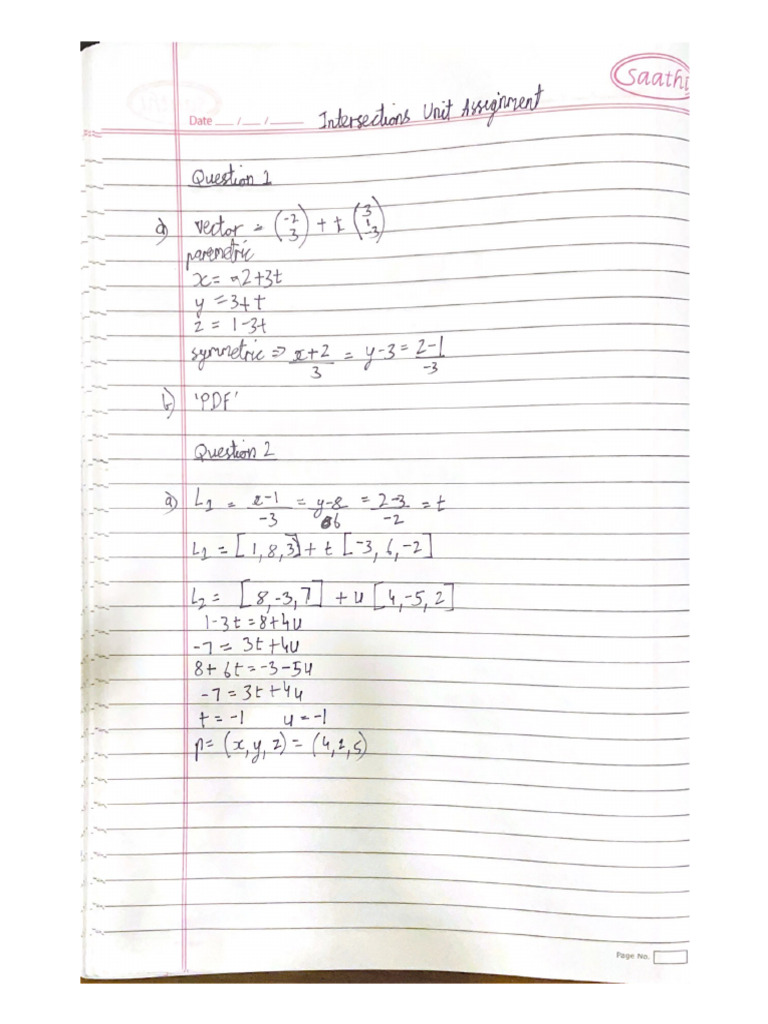 Saathi
Date __/__/____ Intersections Unit Assignment
Question 1
a) vector = (-2 3) + t (3 1 -3)
parametric
x = -2+3t
y = 3+t
z = 1-3t
symmetric => x+2/3 = y-3 = z-1/-3
b) 'PDF'
Question 2
a) L1 = x-1/-3 = y-8/6 = z-3/-2 = t
L1 = [1,8,3] + t [-3,6,-2]
L2 = [8,-3,7] + u [4,-5,2]
1-3t = 8+4u
-7 = 3t+4u
8+6t = -3-5u
-7 = 3t+4u
t = -1 u = -1
p = (x,y,z) = (4,2,5)
Page No.